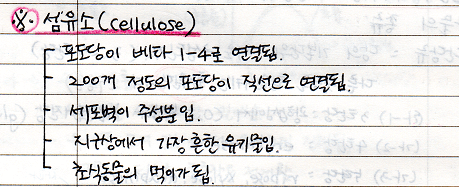 ※. 섬유소(cellulose)
포도당이 베타 1-4로 연결됨.
200개 정도의 포도당이 직선으로 연결됨.
세포벽이 주성분임.
지구상에서 가장 흔한 유기물임.
초식동물의 먹이가 됨.